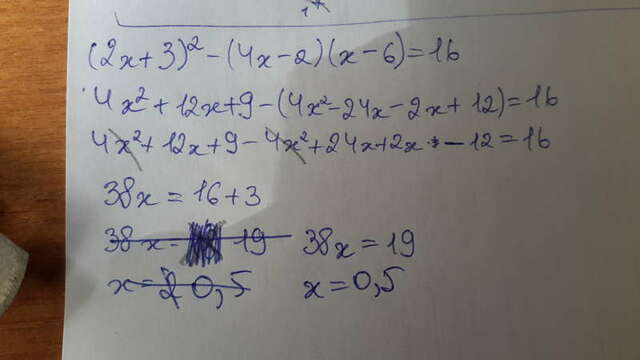 (2x+3)² - (4x-2)(x-6)=16
4x² + 12x+9 - (4x²-24x-2x+12)=16
4x²+12x+9-4x²+24x+2x-12=16
38x = 16+3
38x = 19 38x = 19
x = 0,5 x = 0,5